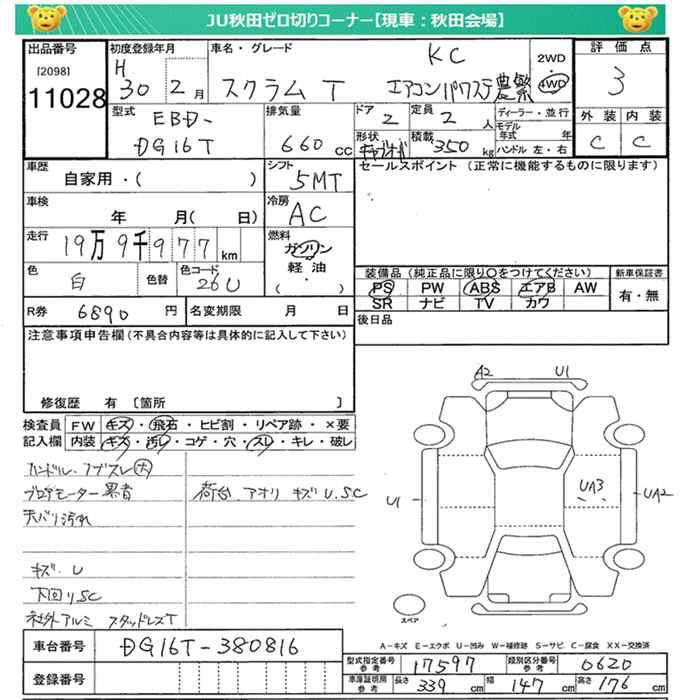 JU秋田ゼロ切りコーナー【現車：秋田会場】
出品番号 [2098] 11028
初度登録年月 H 30年 2月
車名・グレード スクラムT KC エアコンパワステ農繁
2WD・4WD
評価点 3
外装 C 内装 C
型式 EBD-DG16T
排気量 660cc
ドア 2
定員 2人
ディーラー・並行
モデル年式 年
ハンドル 左・右
形状 キャブオーバ
積載 350kg
車歴 自家用・( )
シフト 5MT
セールスポイント (正常に機能するものに限ります)
車検 年 月( 日)
冷房 AC
走行 19万9千977km
燃料 ガソリン 軽油 ( ・ )
色 白 色替 色コード 26U
装備品(純正品に限り○をつけてください)
PS PW ABS エアB AW
SR ナビ TV カワ
新車保証書 有・無
R券 6890円
名変期限 月 日
後日品
注意事項申告欄(不具合内容等は具体的に記入して下さい)
修復歴 有 〔箇所 〕
検査員記入欄
FW キズ・飛石・ヒビ割・リペア跡・×要
内装 キズ・汚レ・コゲ・穴・スレ・キレ・破レ
ハンドル・ノブスレ大
ブロアモーター異音
荷台アオリ キズU.SC
天バリ汚れ
キズ.U
下回りSC
社外アルミ スタッドレスT
A2 U1
U1 UA3 UA2
スペア
A-キズ E-エクボ U-凹み W-補修跡 S-サビ C-腐食 XX-交換済
車台番号 DG16T-380816
登録番号
型式指定番号参考 17597
類別区分番号参考 0620
車庫証明用参考 長さ 339cm 幅 147cm 高さ 176cm